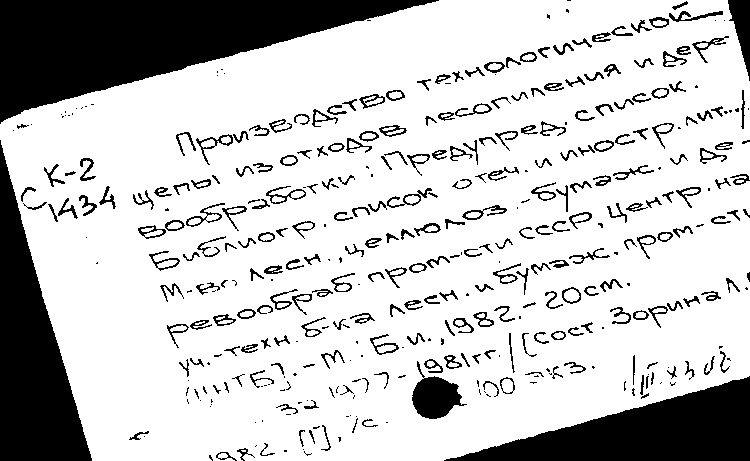 Производство технологической
С К-2 щепы из отходов лесопиления и дере-
1434 вообработки: Предупред. список.
Библиогр. список отеч. и иностр. лит.../
М-во лесн., целлюлоз.-бумаж. и де-
ревообраб. пром-сти СССР, Центр. на
уч.-техн. б-ка лесн. и бумаж. пром-сти
(ЦНТБ]. - М.: Б.и., 1982. - 20см.
за 1977-1981гг. / [Сост. Зорина Л.
1982. [1], 7с. 100 экз.